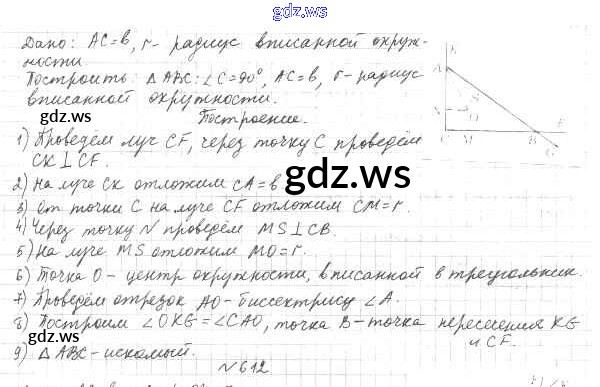 www
gdz.ws
Дано: AC=b, r- радиус вписанной окруж-
ности.
Построить: △ABC: ∠C=90°, AC=b, r-радиус
вписанной окружности.
gdz.ws
Построение.
1) Проведём луч CF, через точку C проведём
CK⊥CF.
2) На луче CK отложим CA=b
gdz.ws
3) От точки C на луче CF отложим CM=r.
4) Через точку N проведём MS⊥CB.
5) На луче MS отложим MO=r.
6) Точка O- центр окружности, вписанной в треугольник.
7) Проведём отрезок AO-биссектрису ∠A.
8) Построим ∠OKG=∠CAO, точка B-точка пересечения KG
и CF.
9) △ABC-искомый.
gdz.ws
gdz.ws
№612
K
A
S
N
O
C M B F
G